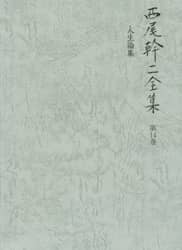 西尾幹二全集
第14巻
人生論集